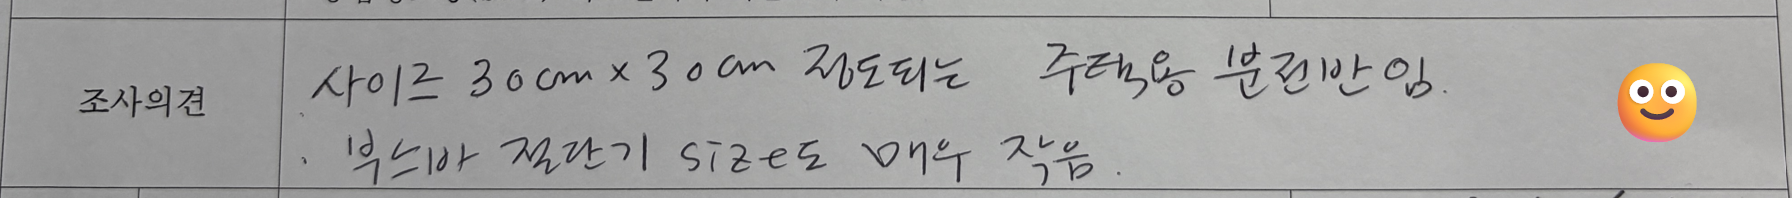 조사의견
사이즈 30cm x 30cm 정도되는 주택용 분전반 임.
. 부스바 절단기 size도 매우 작음.